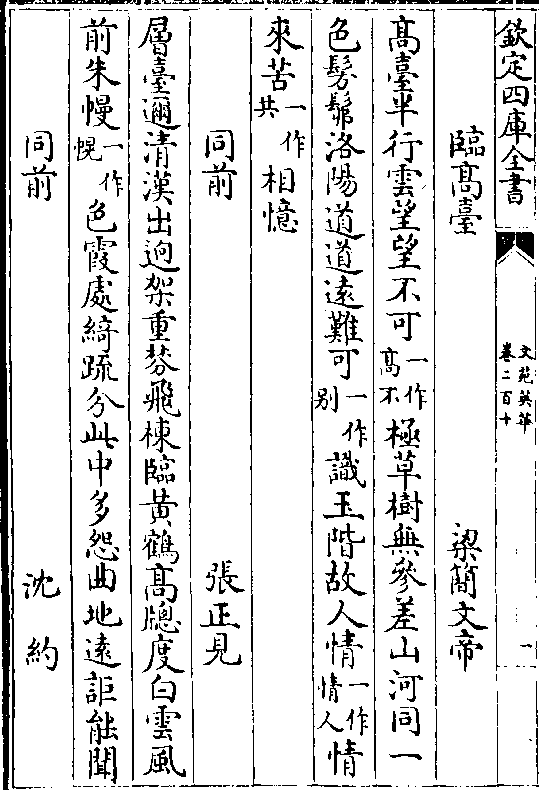 欽定四庫全書
文苑英華
卷二百十
一
臨髙臺　梁簡文帝
髙臺半行雲望望不可一作髙不極草樹無參差山河同一
色髣髴洛陽道道遠難可一作别識玉階故人情一作情人情
來苦一作共相憶
同前　張正見
層臺邇清漢出迥架重棼飛棟臨黄鶴髙牕度白雲風
前朱幔一作幌色霞處綺疏分此中多怨曲地遠詎能聞
同前　沈約